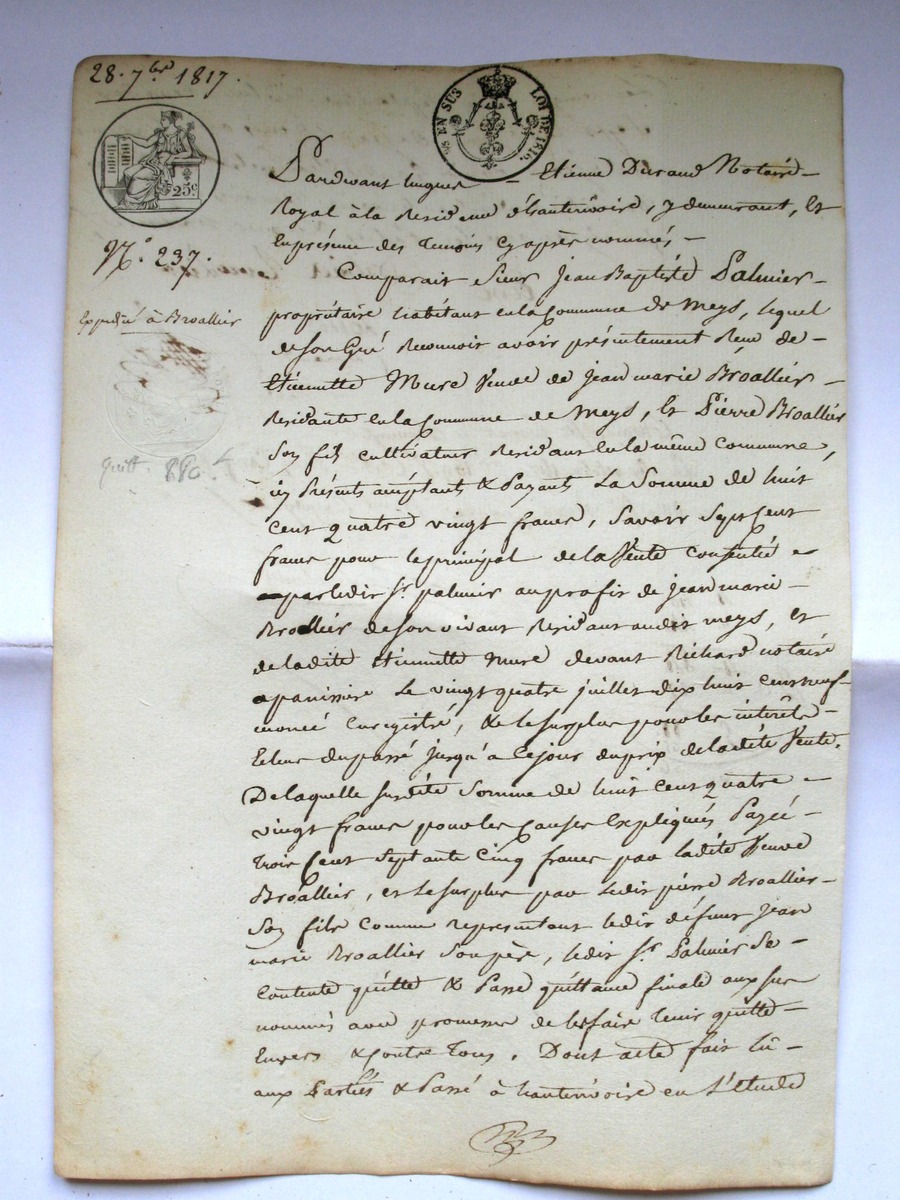 28. 7bre 1817.
EN SUS LOI DE 1816.
25c
N.° 237.
Expédié à Broallier
Quitt. 880.f
Pardevant hugues - Etienne Durand Notaire -
Royal à la Residence d'hauterivoire, y demeurant, Et
En présence des temoins cy après nommés -
Comparait Sieur Jean Baptiste Palmier -
propriétaire habitant en la Commune de Meys, lequel
de son Gré Reconnoit avoir présentement Recu de -
Etiennette Mure Veuve de Jean marie Broallier -
Residante en la Commune de Meys, Et Pierre Broallier
Son fils cultivateur Residant en la même Commune,
icy Présents acceptants & Payants La Somme de huit
Cent quatre vingt francs, Savoir Sept Cent
francs pour le principal de la Vente Consentie -
par ledit Sr. palmier au profit de jean marie -
Broallier de Son vivant Residant audit meys, et
de ladite Etiennette Mure devant Richard notaire
a panissire Le vingt quatre juillet dix huit cent neuf
enregistré, & le Surplus pour les intérêts
du passé jusqu'à Ce jour du prix de la dite Vente.
De laquelle Susdite Somme de huit Cent quatre -
vingt francs pour les Causes Expliqués Payée -
Trois Cent Septante Cinq francs par ladite Veuve
Broallier, et le Surplus par ledit pierre Broallier -
Son fils Comme representant ledit défunt Jean
marie Broallier Son père, ledit Sr. Palmier Se -
Contente quitte & Passe quittance finale aux Sus
nommés avec promesse de les faire tenir quitte -
Envers & Contre Tous. Dont acte fait lû -
aux Parties & Passé à hauterivoire en L'étude